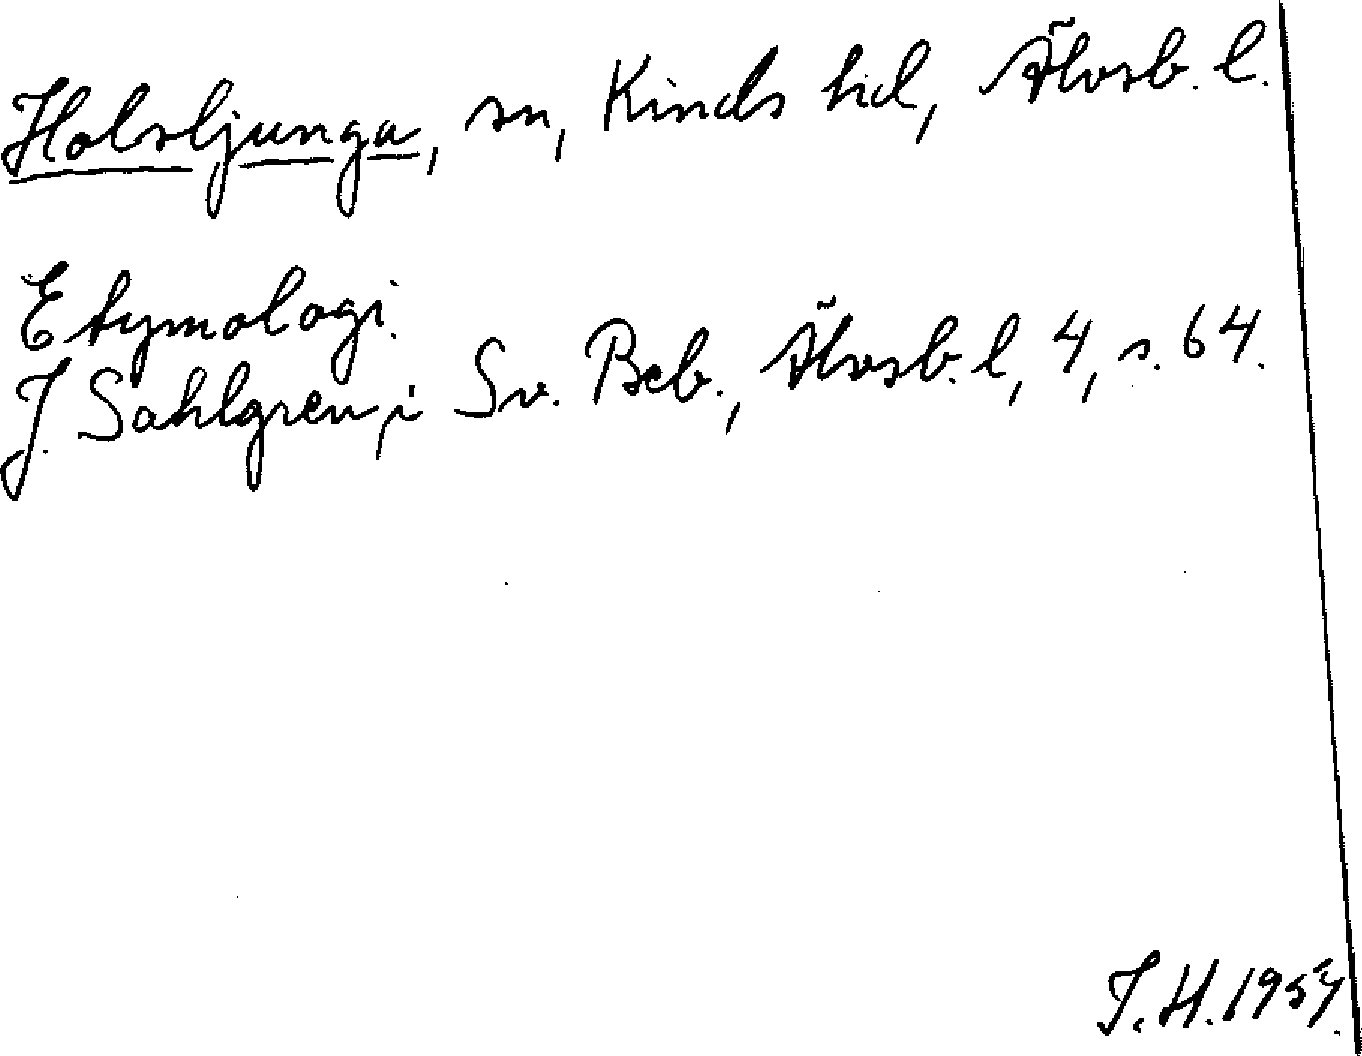 Holsljunga, sn, Kinds hd, Älvsb. l.
Etymologi.
J. Sahlgren, i Sv. Beb., Älvsb. l, 4, s. 64.
J. H. 1957.